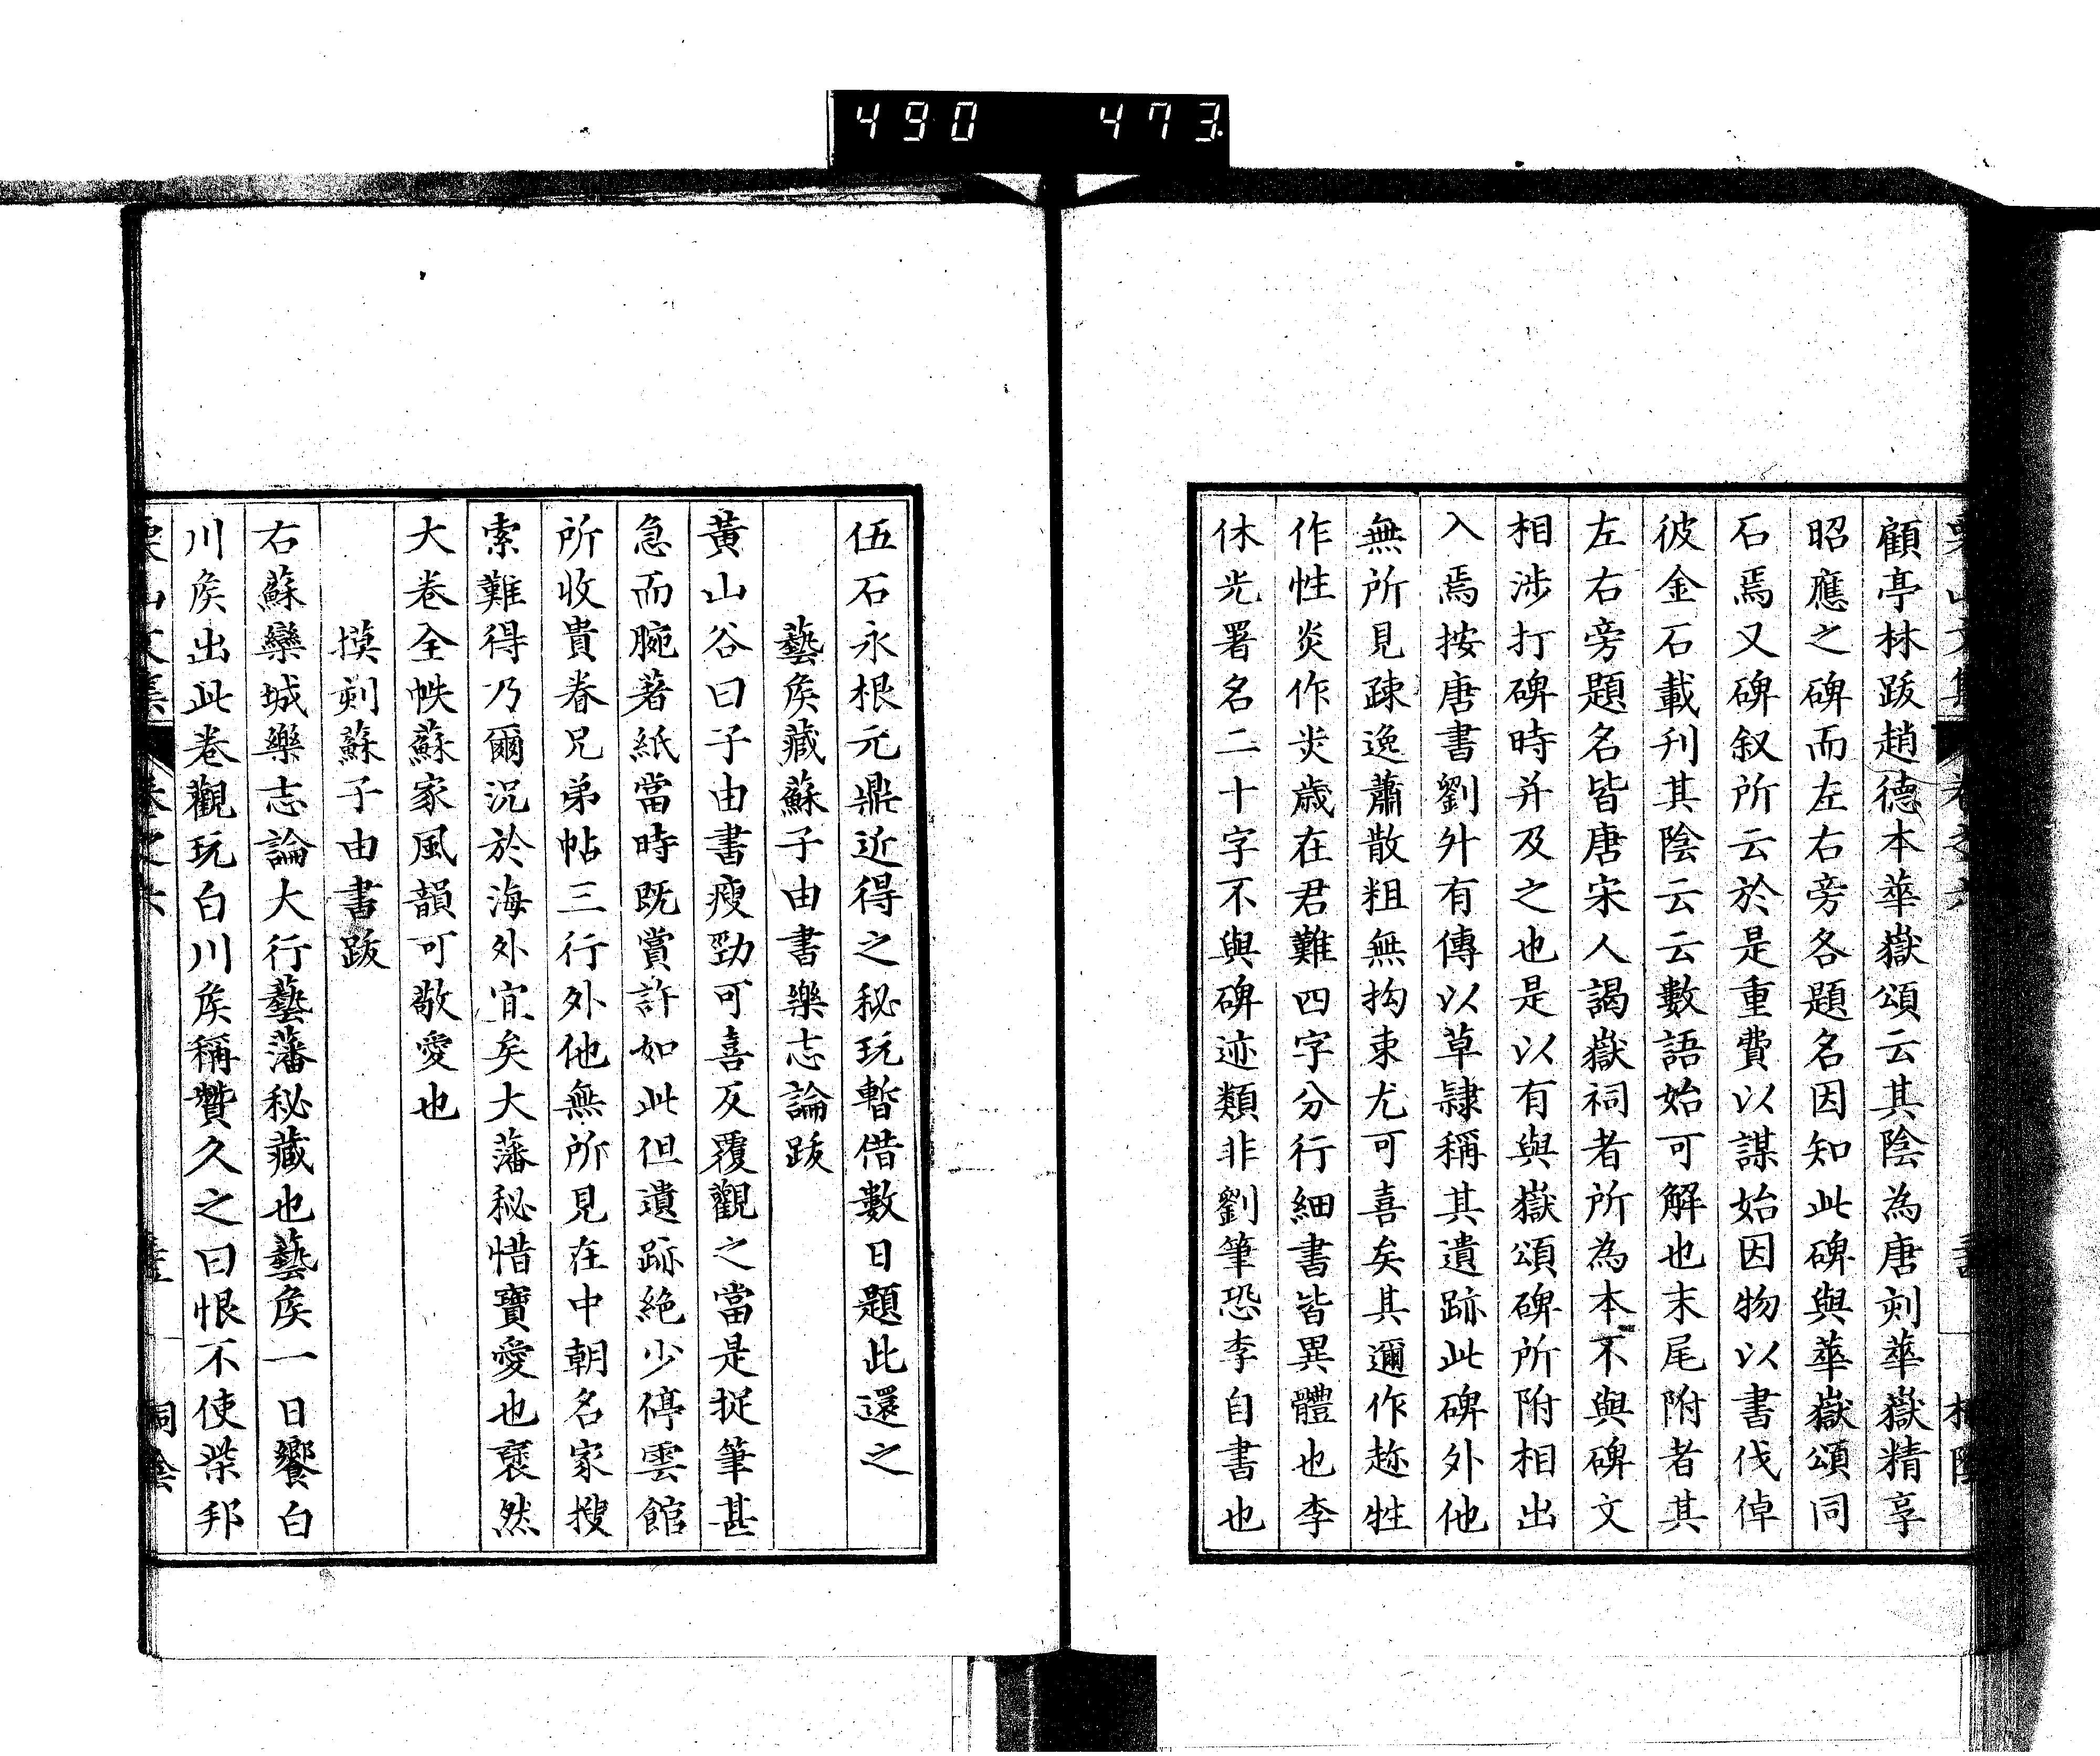 490 473
顧亭林跋趙德本華嶽頌云其陰為唐刻華嶽精享
昭應之碑而左右旁各題名因知此碑與華嶽頌同
石焉又碑叙所云於是重費以謀始因物以書伐倬
彼金石載刋其陰云云數語始可解也末尾附者其
左右旁題名皆唐宋人謁嶽祠者所為本不與碑文
相涉打碑時并及之也是以有與嶽頌碑所附相出
入焉按唐書劉外有傳以草隷稱其遺跡此碑外他
無所見疎逸蕭散粗無拘束尤可喜矣其邇作趂牲
作性炎作𤆍歳在君難四字分行細書皆異體也李
休光署名二十字不與碑迹類非劉筆恐李自書也
伍石永根元鼎近得之秘玩暫借數日題此還之
藝矦藏蘇子由書樂志論跋
黃山谷曰子由書瘦勁可喜反覆觀之當是捉筆甚
急而腕著紙當時既賞許如此但遺跡絶少停雲館
所收貴眷兄弟帖三行外他無所見在中朝名家搜
索難得乃爾況於海外宜矣大藩秘惜寶愛也裒然
大卷全帙蘇家風韻可敬愛也
摸刻蘇子由書跋
右蘇欒城樂志論大行藝藩秘藏也藝矦一日饗白
川矦出此卷觀玩白川矦稱贊久之曰恨不使柴邦
栗山文集 卷之六